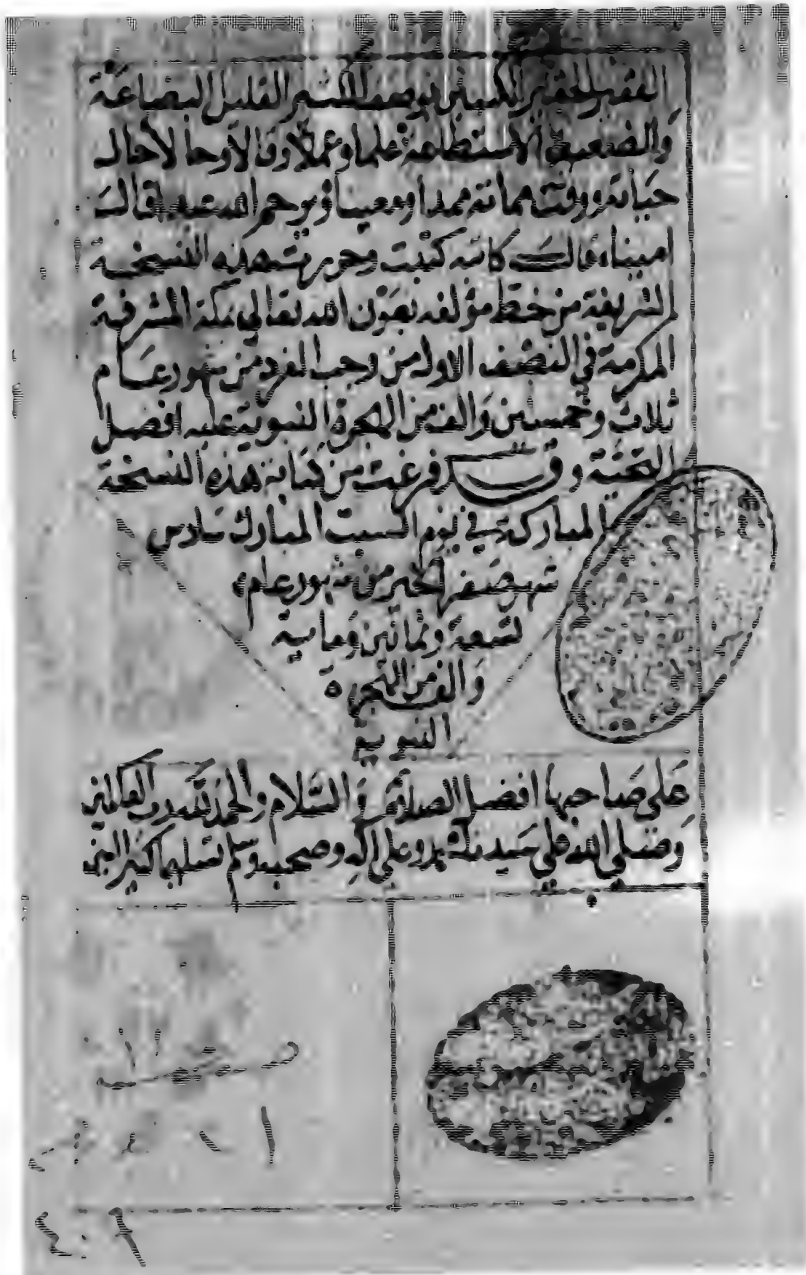 الفقير الحقير الكسير القليل البضاعة
والضعيف الاستطاعة علما وعملا وقالا وحالا لا حال
حياته ووقت مماته ممدا ومعينا ويرحم الله عبدا قال
امينا قال كاتبه كتبت وحررت هذه النسخة
الشريفة من خط مؤلفه بعون الله تعالى بمكة المشرفة
المكرمة في النصف الاول من رجب الفرد من شهور عام
ثلاث وخمسين والف من الهجرة النبوية عليه افضل
التحية وقد فرغت من كتابة هذه النسخة
المباركة في يوم السبت المبارك سادس
شهر صفر الخير من شهور عام
تسعة وثمانين وماية
والف من الهجرة
النبوية
على صاحبها افضل الصلاة والسلام والحمد لله رب العالمين
وصلى الله على سيدنا محمد وعلى آله وصحبه وسلم تسليما كثيرا